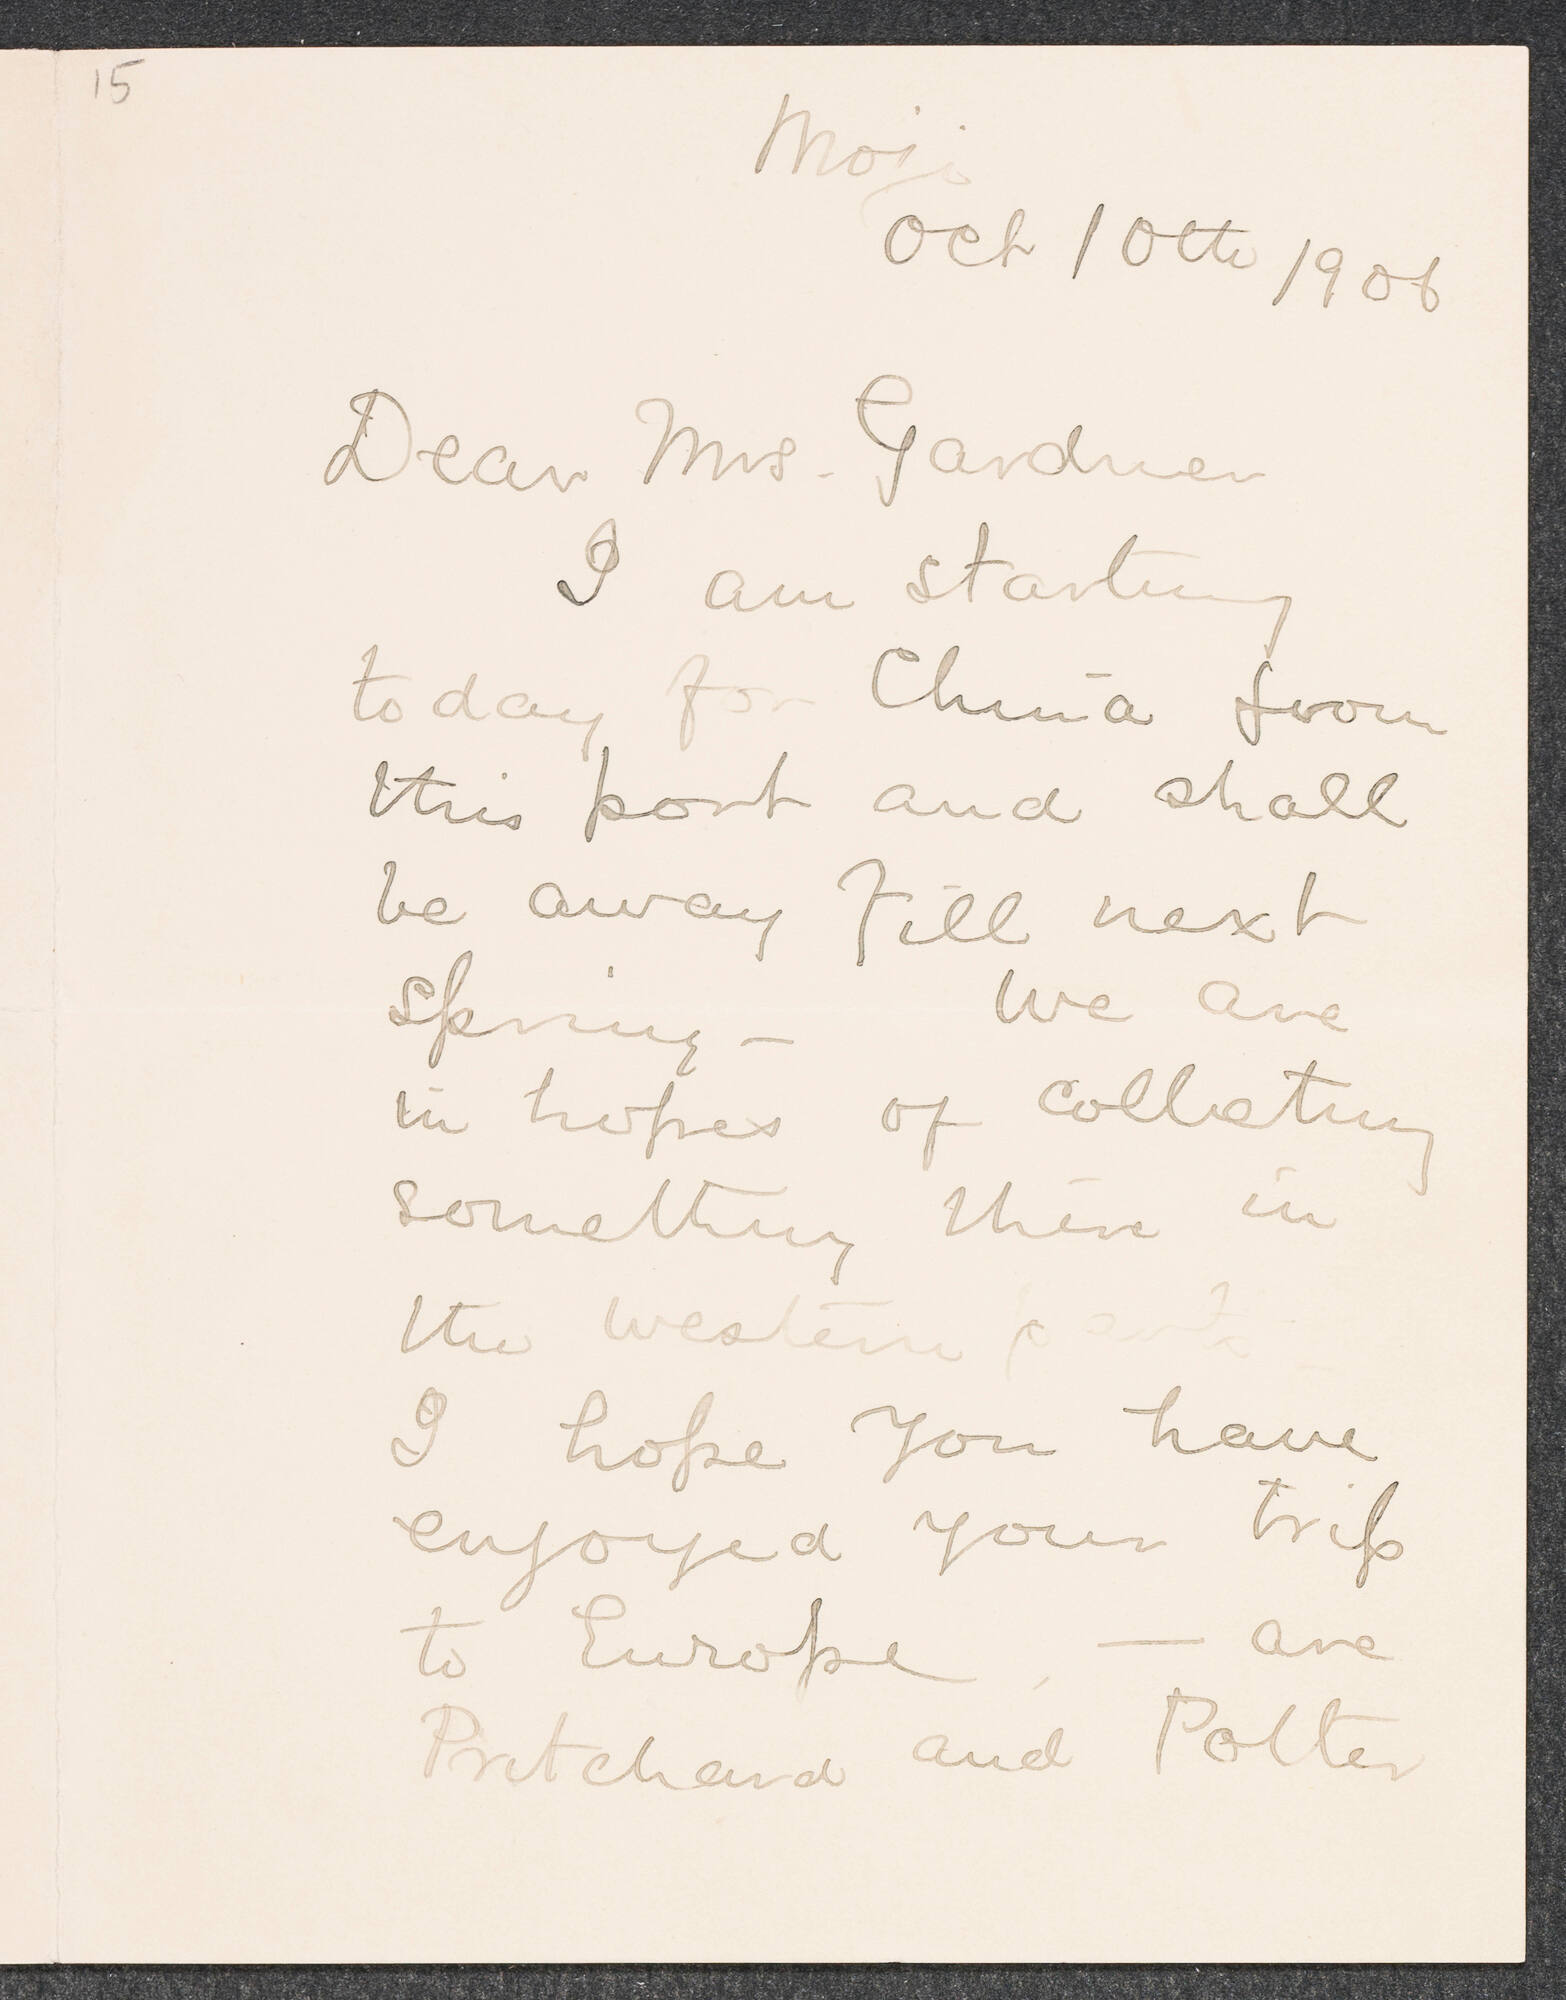 15
Moji
Oct 10th 1906
Dear Mrs. Gardner
I am starting
today for China from
this port and shall
be away till next
spring – We are
in hopes of collecting
something there in
the western parts –
I hope you have
enjoyed your trip
to Europe, — are
Pritchard and Potter